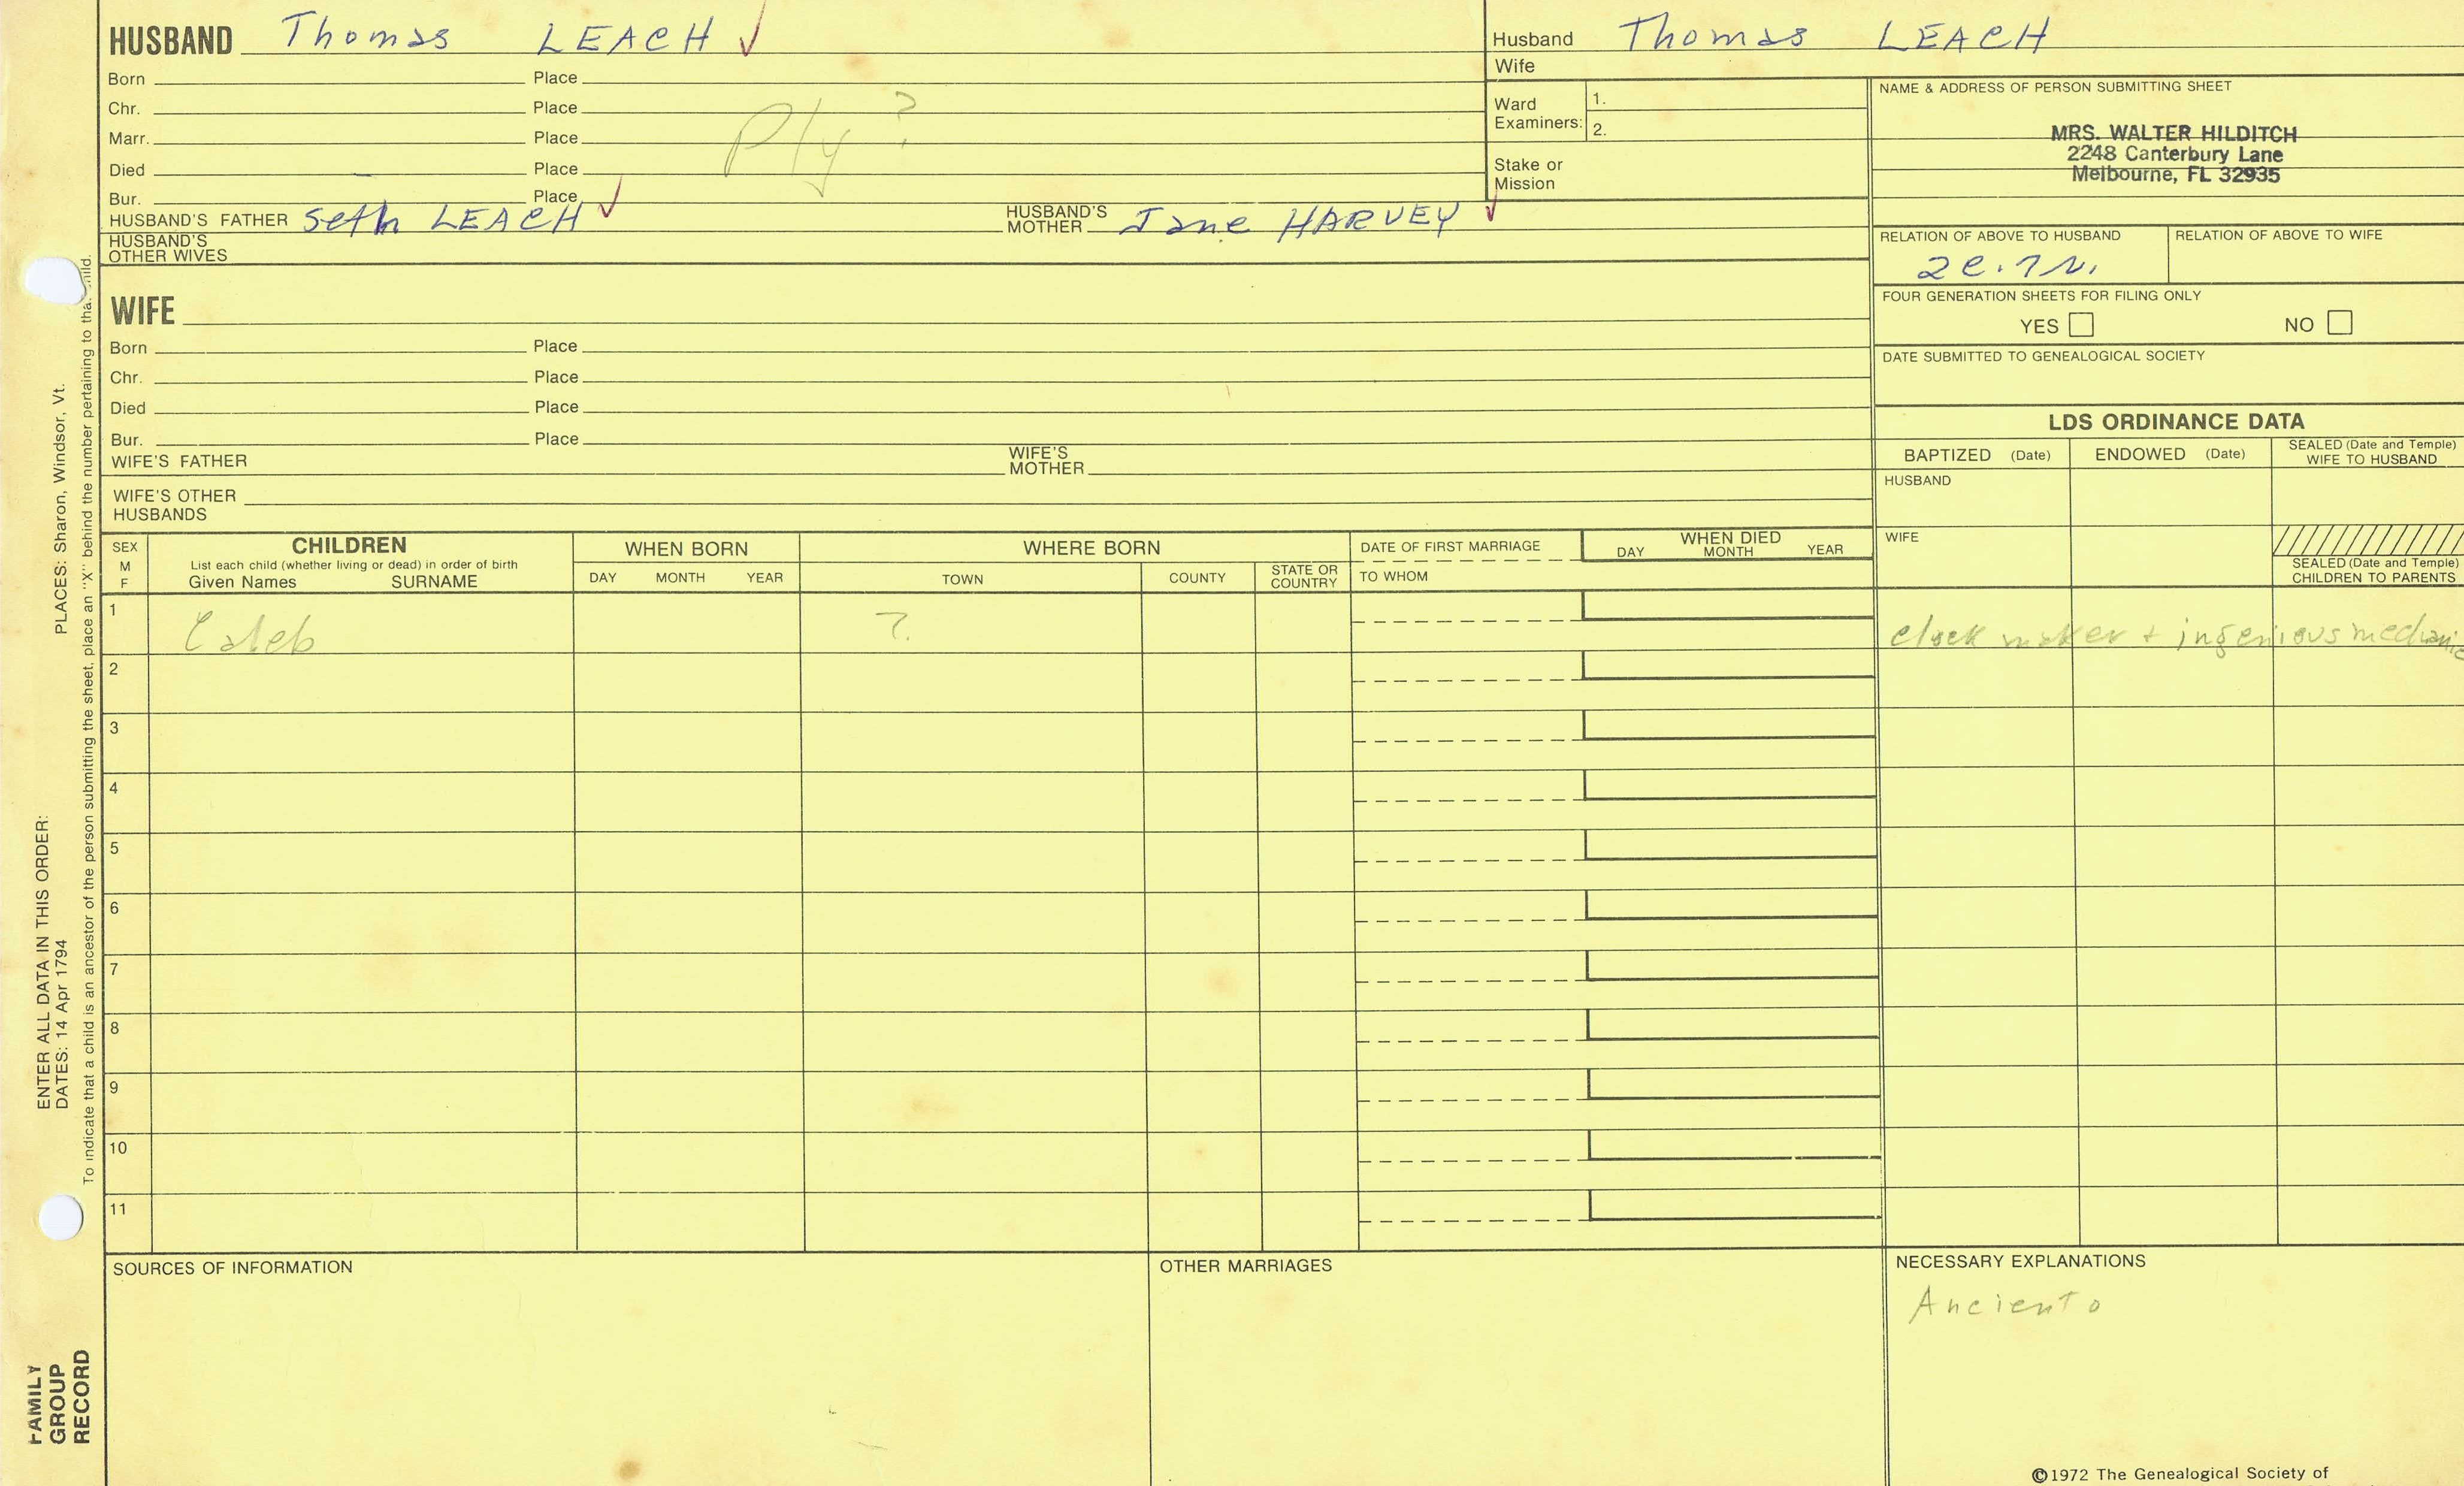 HUSBAND Thomas LEACH ✓
Born Place
Chr. Place
Marr. Place
Ply ?
Died Place
Bur. Place
HUSBAND'S FATHER Seth LEACH ✓ HUSBAND'S MOTHER Jane HARVEY ✓
HUSBAND'S OTHER WIVES
Husband Thomas LEACH
Wife
Ward Examiners: 1.
2.
Stake or Mission
NAME & ADDRESS OF PERSON SUBMITTING SHEET
MRS. WALTER HILDITCH
2248 Canterbury Lane
Melbourne, FL 32935
RELATION OF ABOVE TO HUSBAND RELATION OF ABOVE TO WIFE
FOUR GENERATION SHEETS FOR FILING ONLY
YES NO
DATE SUBMITTED TO GENEALOGICAL SOCIETY
WIFE
Born Place
Chr. Place
Died Place
Bur. Place
WIFE'S FATHER WIFE'S MOTHER
WIFE'S OTHER HUSBANDS
LDS ORDINANCE DATA
BAPTIZED (Date) ENDOWED (Date) SEALED (Date and Temple) WIFE TO HUSBAND
HUSBAND
WIFE
SEALED (Date and Temple) CHILDREN TO PARENTS
SEX M F
CHILDREN
List each child (whether living or dead) in order of birth
Given Names SURNAME
WHEN BORN
DAY MONTH YEAR
WHERE BORN
TOWN COUNTY STATE OR COUNTRY
DATE OF FIRST MARRIAGE
TO WHOM
WHEN DIED
DAY MONTH YEAR
1 Caleb ? clock maker + ingenious mechanic
2
3
4
5
6
7
8
9
10
11
SOURCES OF INFORMATION
OTHER MARRIAGES
NECESSARY EXPLANATIONS
Anciento
©1972 The Genealogical Society of
ENTER ALL DATA IN THIS ORDER:
DATES: 14 Apr 1794 PLACES: Sharon, Windsor, Vt.
To indicate that a child is an ancestor of the person submitting the sheet, place an "X" behind the number pertaining to that child.
FAMILY
GROUP
RECORD